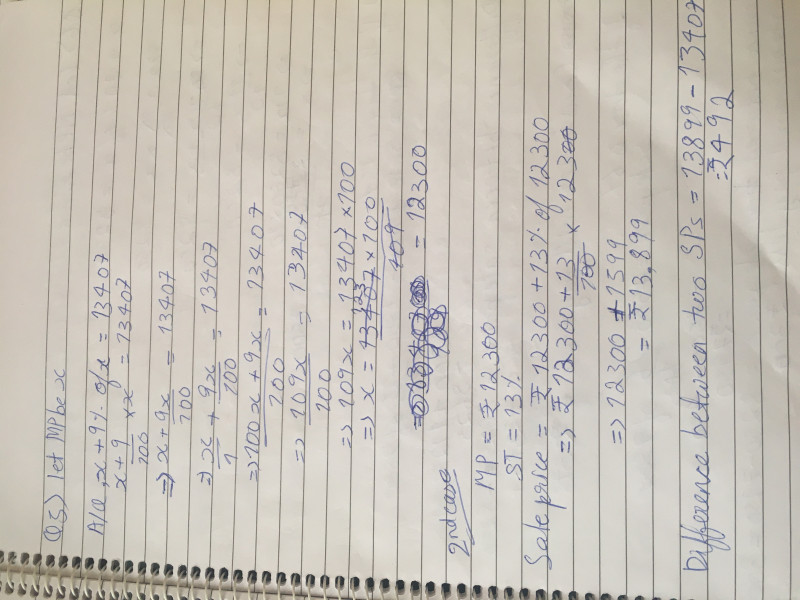 Q5) let MP be x
A/Q, x + 9% of x = 13407
x + 9/100 × x = 13407
⇒ x + 9x/100 = 13407
⇒ x/1 + 9x/100 = 13407
⇒ 100x + 9x/100 = 13407
⇒ 109x/100 = 13407
⇒ 109x = 13407 × 100
⇒ x = 13407 × 100/109 123
= 12300
2nd case
MP = ₹ 12300
ST = 13%
Sale price = ₹ 12300 + 13% of 12300
⇒ ₹ 12300 + 13/100 × 12300
⇒ 12300 + 1599
= ₹ 13,899
Difference between two SPs = 13899 - 13407
= ₹ 492